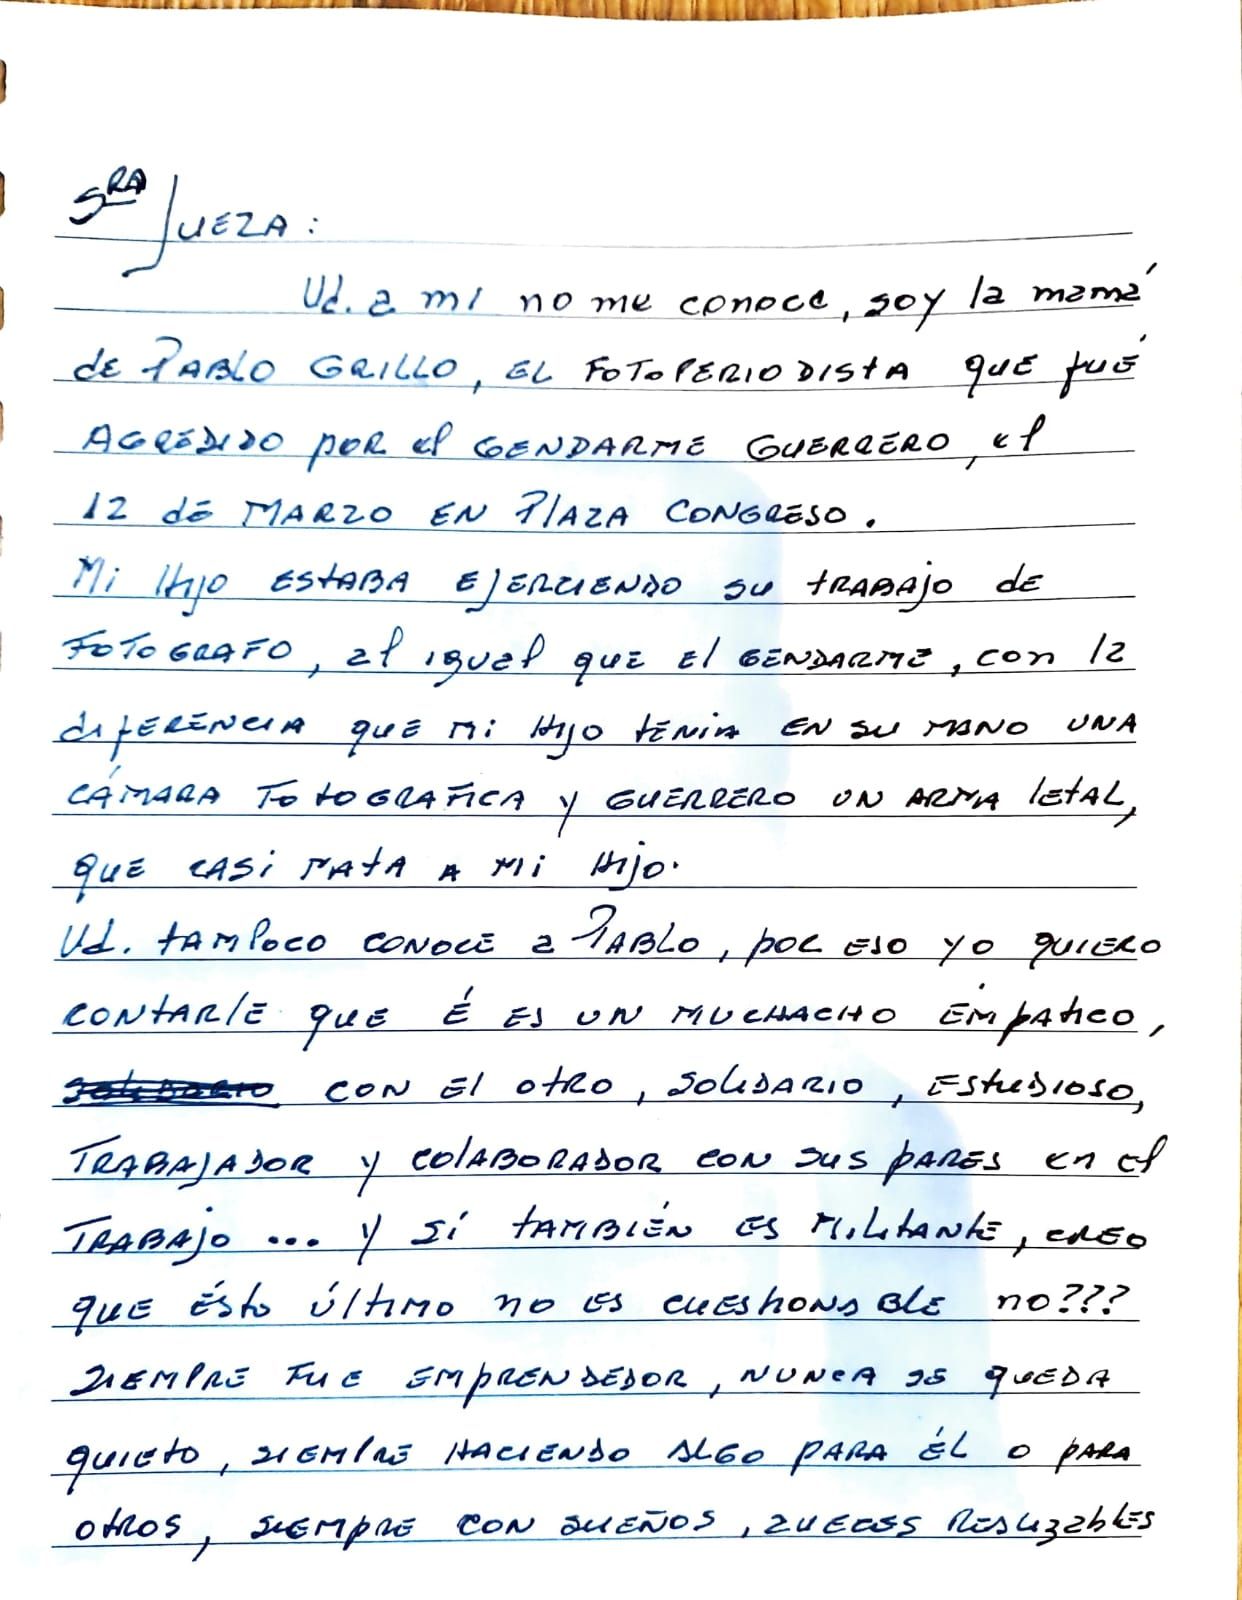 Sra Jueza:
Ud. a mi no me conoce, soy la mamá
de Pablo Grillo, el fotoperiodista que fué
agredido por el gendarme Guerrero, el
12 de Marzo en Plaza Congreso.
Mi hijo estaba ejerciendo su trabajo de
fotografo, al igual que el gendarme, con la
diferencia que mi hijo tenia en su mano una
cámara fotografica y Guerrero un arma letal,
que casi mata a mi hijo.
Ud. tampoco conoce a Pablo, por eso yo quiero
contarle que é es un muchacho empatico,
con el otro, solidario, estudioso,
trabajador y colaborador con sus pares en el
trabajo ... y sí también es militante, creo
que ésto último no es cuestionable no???
Siempre fue emprendedor, nunca se queda
quieto, siempre haciendo algo para él o para
otros, siempre con sueños, realizables